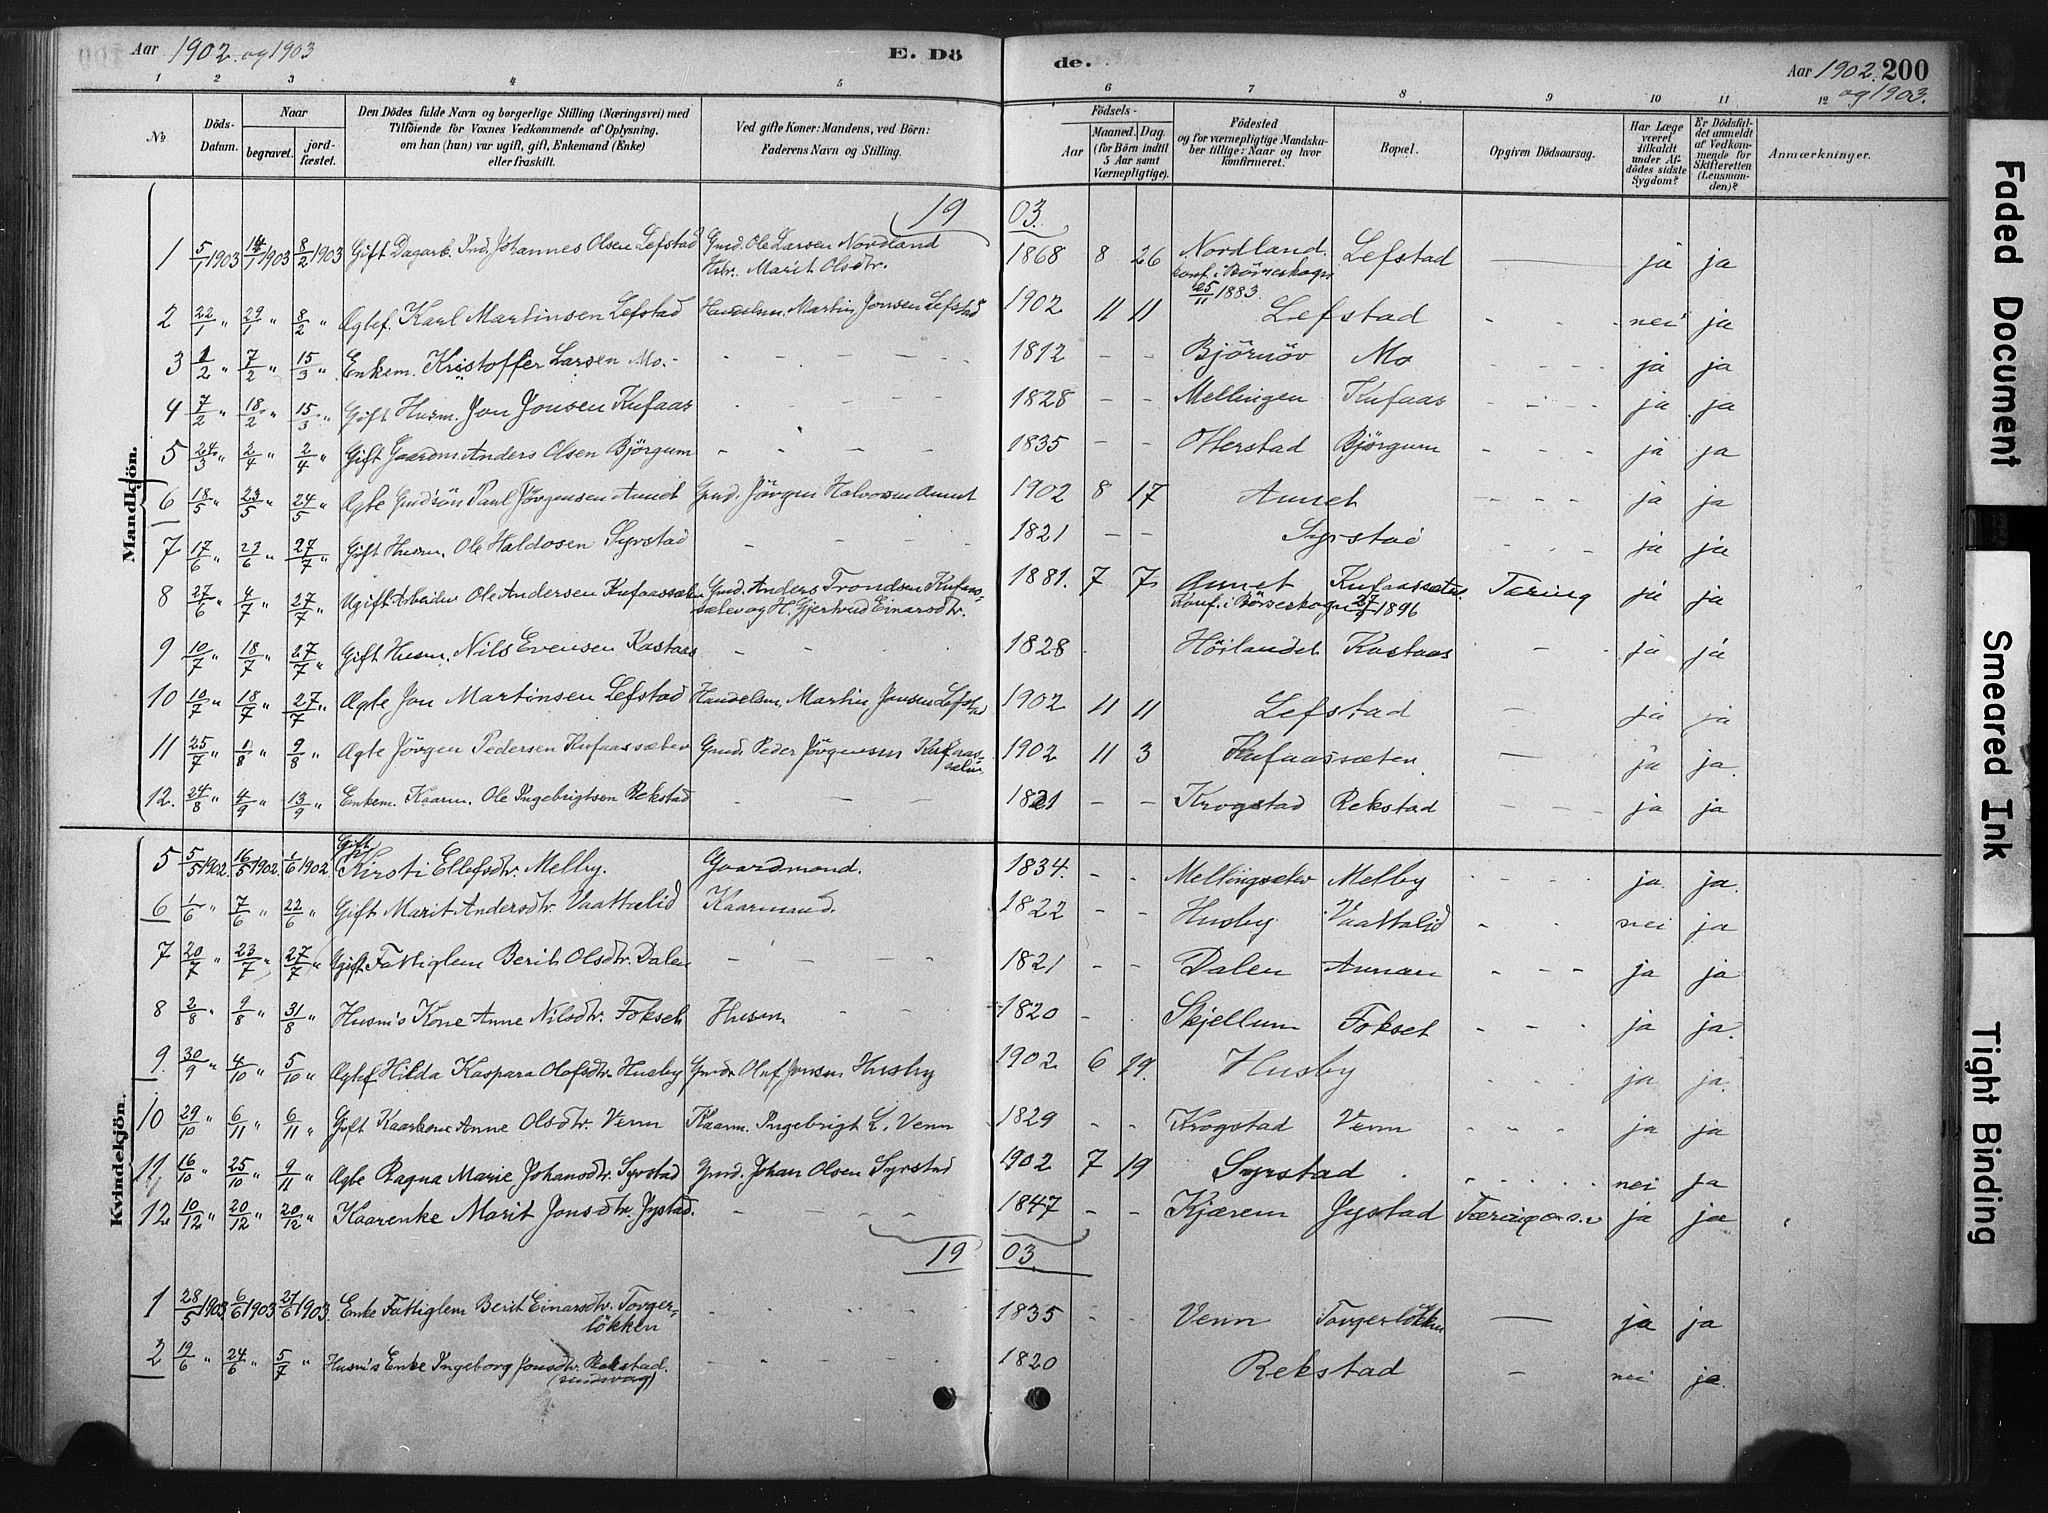 Aar 1902 og 1903
E. Dö
de.
Aar 1902. 200
og 1903.
1 2 3 4 5 6 7 8 9 10 11 12
No
Döds-Datum.
Naar
begravet.
jord-fæstet.
Den Dödes fulde Navn og borgerlige Stilling (Næringsvei) med
Tilföiende for Voxnes Vedkommende af Oplysning.
om han (hun) var ugift, gift, Enkemand (Enke)
eller fraskilt.
Ved gifte Koner: Mandens, ved Börn:
Faderens Navn og Stilling.
Födsels-
Aar
Maaned. Dag.
(for Börn indtil
5 Aar samt
Værnepligtige).
Födested
og for værnepligtige Mandska-
ber tillige: Naar og hvor
konfirmeret.
Bopæl.
Opgiven Dödsaarsag.
Har Læge
været
tilkaldt
under Af-
dödes sidste
Sygdom?
Er Dödsfal-
det anmeldt
af Vedkom-
mende for
Skifteretten
(Lensman-
den)?
Anmærkninger.
Mandkjön.
19 03.
1 5/1 1903 14/1 1903 8/2 1903 Gift Dagarb. Ind. Johannes Olsen Lefstad Gmd. Ole Larsen Nordland 1868 8 26 Nordland Lefstad — ja ja
Hstr. Marit Olsdtr. konf. i Börseskogn
25/11 1883.
2 22/1 " 29/1 " 8/2 " Ægtef. Karl Martinsen Lefstad Handelsm. Martin Jonsen Lefstad 1902 11 11 Lefstad - - nei ja
3 1/2 " 7/2 " 15/3 " Enkem. Kristoffer Larsen Mo. - - - - 1812 - - Björnöv Mo - - - ja ja
4 7/2 " 18/2 " 15/3 " Gift Husm. Jon Jonsen Kufaas - - - - 1828 - - Mellingen Kufaas - - - ja ja
5 24/3 " 2/4 " 2/4 " Gift Gaardm. Anders Olsen Björgum - - - - 1835 - - Otterstad Björgum - - - ja ja
6 18/5 " 23/5 " 24/5 " Ægte Gmdsön Paul Jörgensen Aunet Gmd. Jörgen Halvorsen Aunet 1902 8 17 Aunet - - - - ja ja
7 17/6 " 23/6 " 27/7 " Gift Husm. Ole Haldosen Syrstad - - - - 1821 - - Syrstad - - - ja ja
8 27/6 " 4/7 " 27/7 " Ugift Arbeider Ole Andersen Kufaassæter Gmd. Anders Trondsen Kufaas- 1881. 7 7 Aunet Kufaassæter Tæring ja ja
sæter og H. Gjertrud Einarsdtr. Konf. i Börseskogn 27/9 1896
9 10/7 " 18/7 " 27/7 " Gift Husm. Nils Evensen Kastaas - - - 1828 Höilandet Kastaas - - ja ja
10 10/7 " 18/7 " 27/7 " Ægte Jon Martinsen Lefstad Handelsm. Martin Jonsen Lefstad 1902 11 11 Lefstad — ja ja
11 25/7 " 1/8 " 9/8 " Ægte Jörgen Pedersen Kufaassæter Gmd. Peder Jörgensen Kufaas- 1902 11 3 Kufaassæter — ja ja.
sæter
12. 24/8 " 4/9 " 13/9 " Enkem. Kaarm. Ole Ingebrigtsen Rekstad - - - 1821 - - Krogstad Rekstad - - - ja ja
Kvindekjön.
5 5/5 1902. 16/5 1902 1/6 1902 Gift Kirsti Ellefsdtr. Melby. Gaardmand. 1834. - - Mellingsæter Melby - - - - ja ja.
6 1/6 " 7/6 " 22/6 " Gift Marit Andersdtr. Vaattalid Kaarmand. 1822 - - Husby Vaattalid - - - nei ja
7 20/7 " 23/7 " 27/7 " Ugift Fattiglem Berit Olsdtr. Dalen - - - - 1821 - - Dalen Aunan - - - ja ja
8 2/8 " 9/8 " 31/8 " Husm's Kone Anne Nilsdtr. Fokset Husm. - - 1820 - - Skjellum Fokset - - - ja ja.
9. 30/9 " 4/10 " 5/10 " Ægtef. Hilda Kaspara Olafsdtr. Husby Gmd. Olaf Jonsen Husby 1902. 6 19. Husby ja ja.
10 29/10 " 6/11 " 6/11 " Gift Kaarkone Anne Olsdtr. Venn Kaarm. Ingebrigt L. Venn 1829 - - Krogstad Venn - - - ja ja
11 16/10 " 25/10 " 9/11 " Ægte Ragna Marie Johansdtr. Syrstad Gmd. Johan Olsen Syrstad 1902 7 19 Syrstad - - - - nei ja
12 10/12 " 20/12 " 20/12 " Kaarenke Marit Jonsdtr. Jystad. - - - - 1847 - - Kjærem Jystad Tæring o.s.v ja ja
19 03
1 28/5 1903 6/6 1903 21/6 1903. Enke Fattiglem Berit Einarsdtr. Torger- - - - - 1835 - - Venn Torgerlökken — ja ja
lökken
2 19/6 " 24/6 " 5/7 " Husm's Enke Ingeborg Jonsdtr. Rekstad. - - - - 1820 Rekstad — nei ja
Faded Document
Smeared Ink
Tight Binding